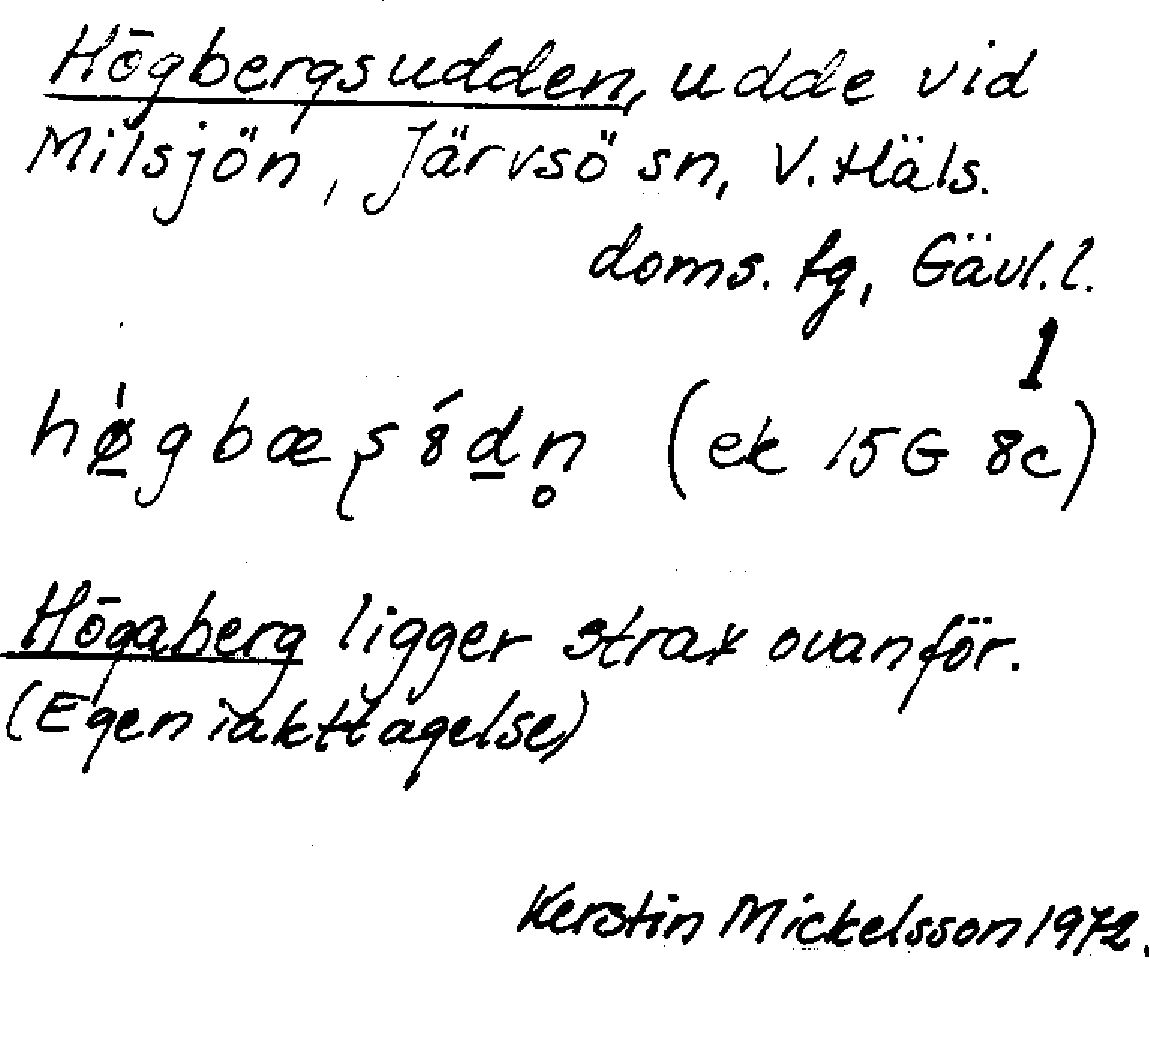 Högbergsudden, udde vid
Milsjön, Järvsö sn, V. Häls.
doms. tg, Gävl. l.
1
(ek 15G 8c)
Högaberg ligger strax ovanför.
(Egen iakttagelse)
Kerstin Mickelsson 1972.